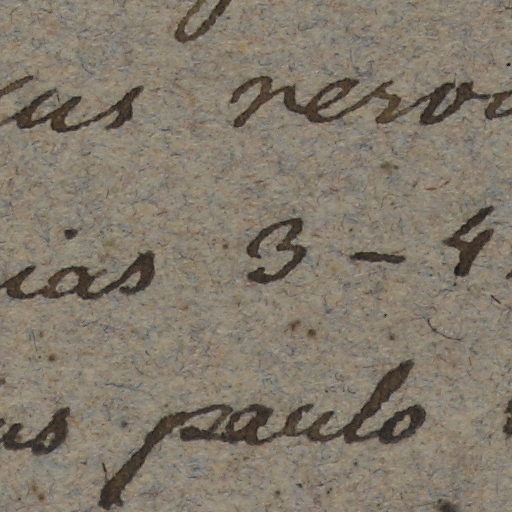 us nervo
ias 3-4
us paulo